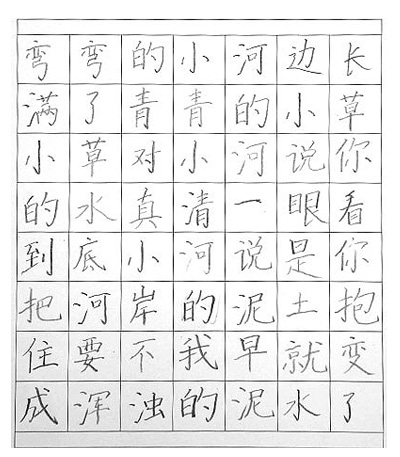 弯弯的小河边长
满了青青的小草
小草对小河说你
的水真清一眼看
到底小河说是你
把河岸的泥土抱
住要不我早就变
成浑浊的泥水了